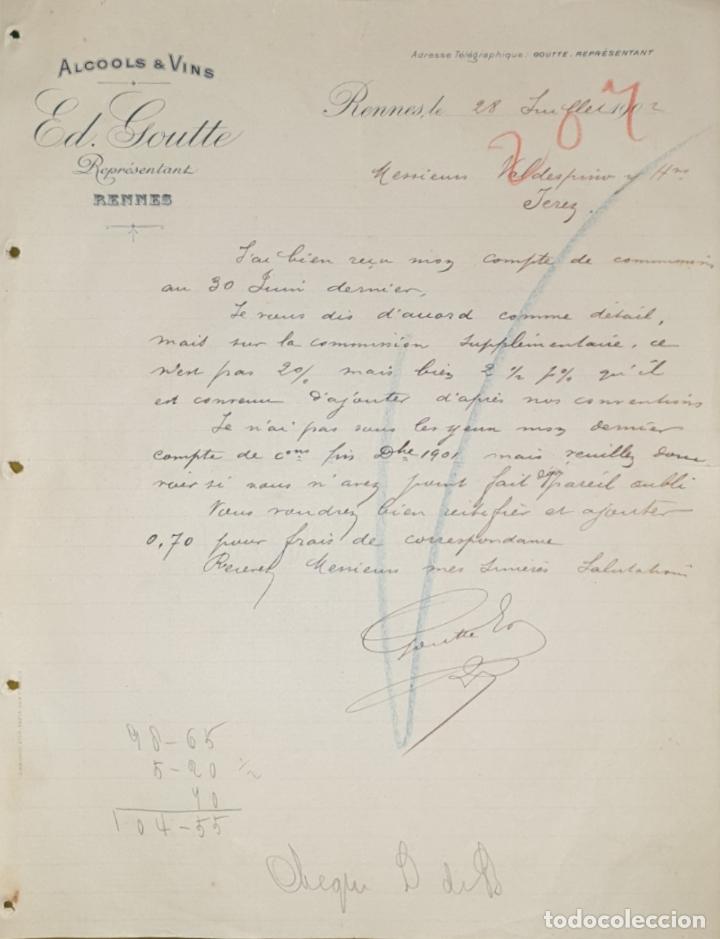 Adresse Télégraphique: GOUTTE. REPRÉSENTANT
ALCOOLS & VINS
Ed. Goutte
Représentant
RENNES
Rennes, le 28 Juillet 1902
Messieurs Valdespino y Hno
Jerez.
J'ai bien reçu mon compte de commissions
au 30 Juin dernier.
Je vous dis d'accord comme détail,
mais sur la commission supplémentaire, ce
n'est pas 2% mais bien 2 ½ % qu'il
est convenu d'ajouter d'après nos conventions
Je n'ai pas sous les yeux mon dernier
compte de cons fin Dbre 1901 mais veuillez donc
voir si vous n'avez point fait déjà pareil oubli
Vous voudrez bien rectifier et ajouter
0,70 pour frais de correspondance
Recevez Messieurs mes sincères Salutations
Goutte Ed
98-65
5-20 ½
70
104-55
Cheque D de B
todocoleccion